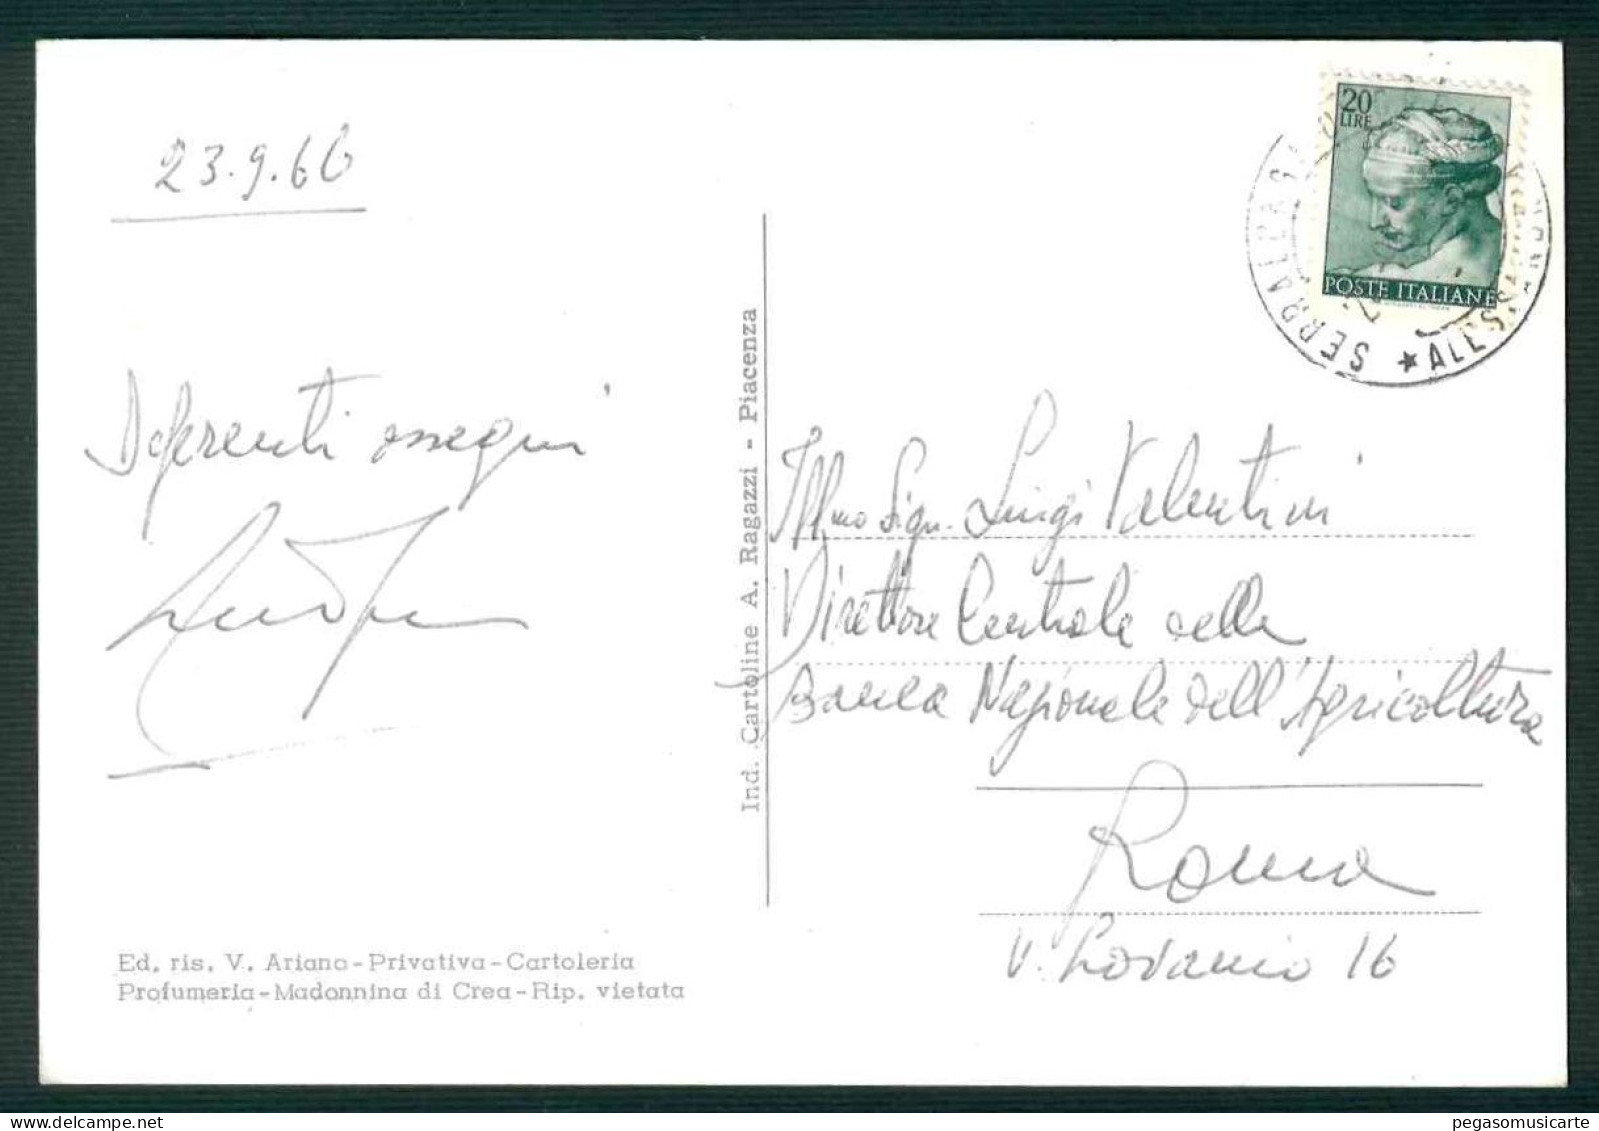 23.9.66
Deferenti ossequi
Ind. Cartoline A. Ragazzi - Piacenza
Ed. ris. V. Ariano-Privativa-Cartoleria
Profumeria-Madonnina di Crea-Rip. vietata
20
LIRE
POSTE ITALIANE
★ ALESS
Ill.mo Sign. Luigi Valentini
Direttore Centrale della
Banca Nazionale dell'Agricoltura
Roma
V. Lovanio 16
pegasomusicarte